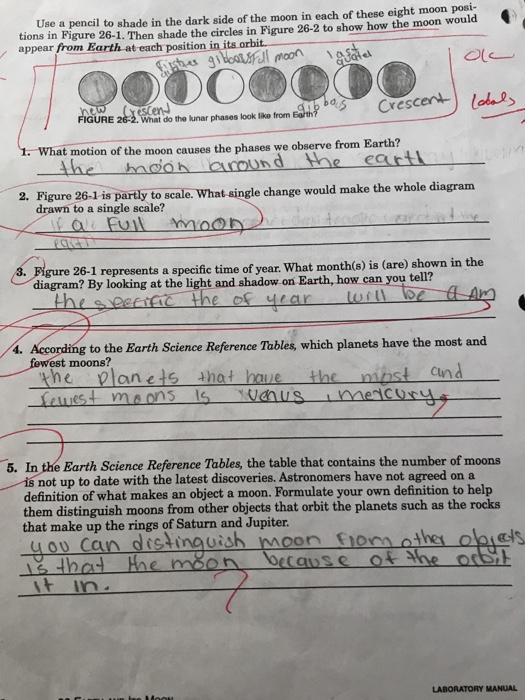 Use a pencil to shade in the dark side of the moon in each of these eight moon posi-
tions in Figure 26-1. Then shade the circles in Figure 26-2 to show how the moon would
appear from Earth at each position in its orbit.
gibbous full moon last
quater
new crescend gibbous Crescent labels
FIGURE 26-2. What do the lunar phases look like from Earth?
1. What motion of the moon causes the phases we observe from Earth?
the moon around the earth
2. Figure 26-1 is partly to scale. What single change would make the whole diagram
drawn to a single scale?
if a Full moon
3. Figure 26-1 represents a specific time of year. What month(s) is (are) shown in the
diagram? By looking at the light and shadow on Earth, how can you tell?
the specific the of year will be a Am
4. According to the Earth Science Reference Tables, which planets have the most and
fewest moons?
the planets that have the most and
fewest moons is venus , mercury
5. In the Earth Science Reference Tables, the table that contains the number of moons
is not up to date with the latest discoveries. Astronomers have not agreed on a
definition of what makes an object a moon. Formulate your own definition to help
them distinguish moons from other objects that orbit the planets such as the rocks
that make up the rings of Saturn and Jupiter.
you can distinguish moon from other objects
is that the moon because of the orbit
it in.
?
LABORATORY MANUAL